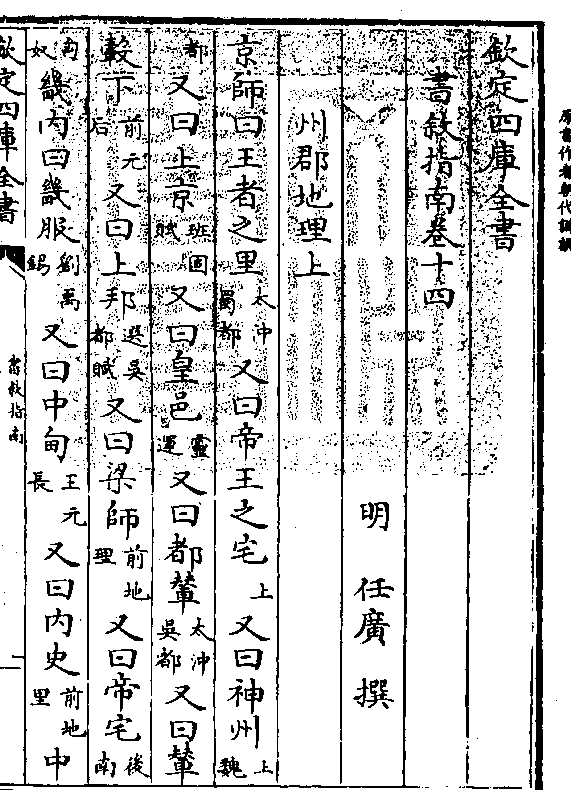 原書作者朝代
欽定四庫全書
書敘指南卷十四
明 任廣 撰
州郡地理上
京師曰王者之里太冲蜀都又曰帝王之宅上又曰神州上魏
都又曰上京班固賦又曰皇邑靈運又曰都輦太沖吳都又曰輦
轂下前元后又曰上邦選吳都賦又曰梁師前地理又曰帝宅後南
匈奴畿内曰畿服劉禹錫又曰中甸王元長又曰内史前地里中
欽定四庫全書
書敘指南